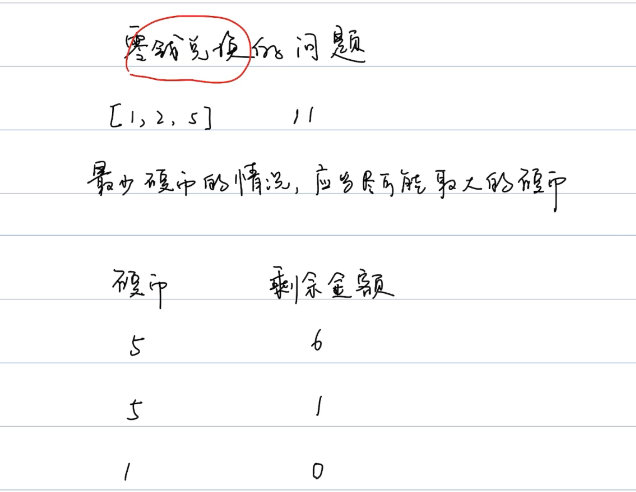 零钱兑换的问题
[1, 2, 5] 11
最少硬币的情况, 应当尽可能取大的硬币
硬币 剩余金额
5 6
5 1
1 0